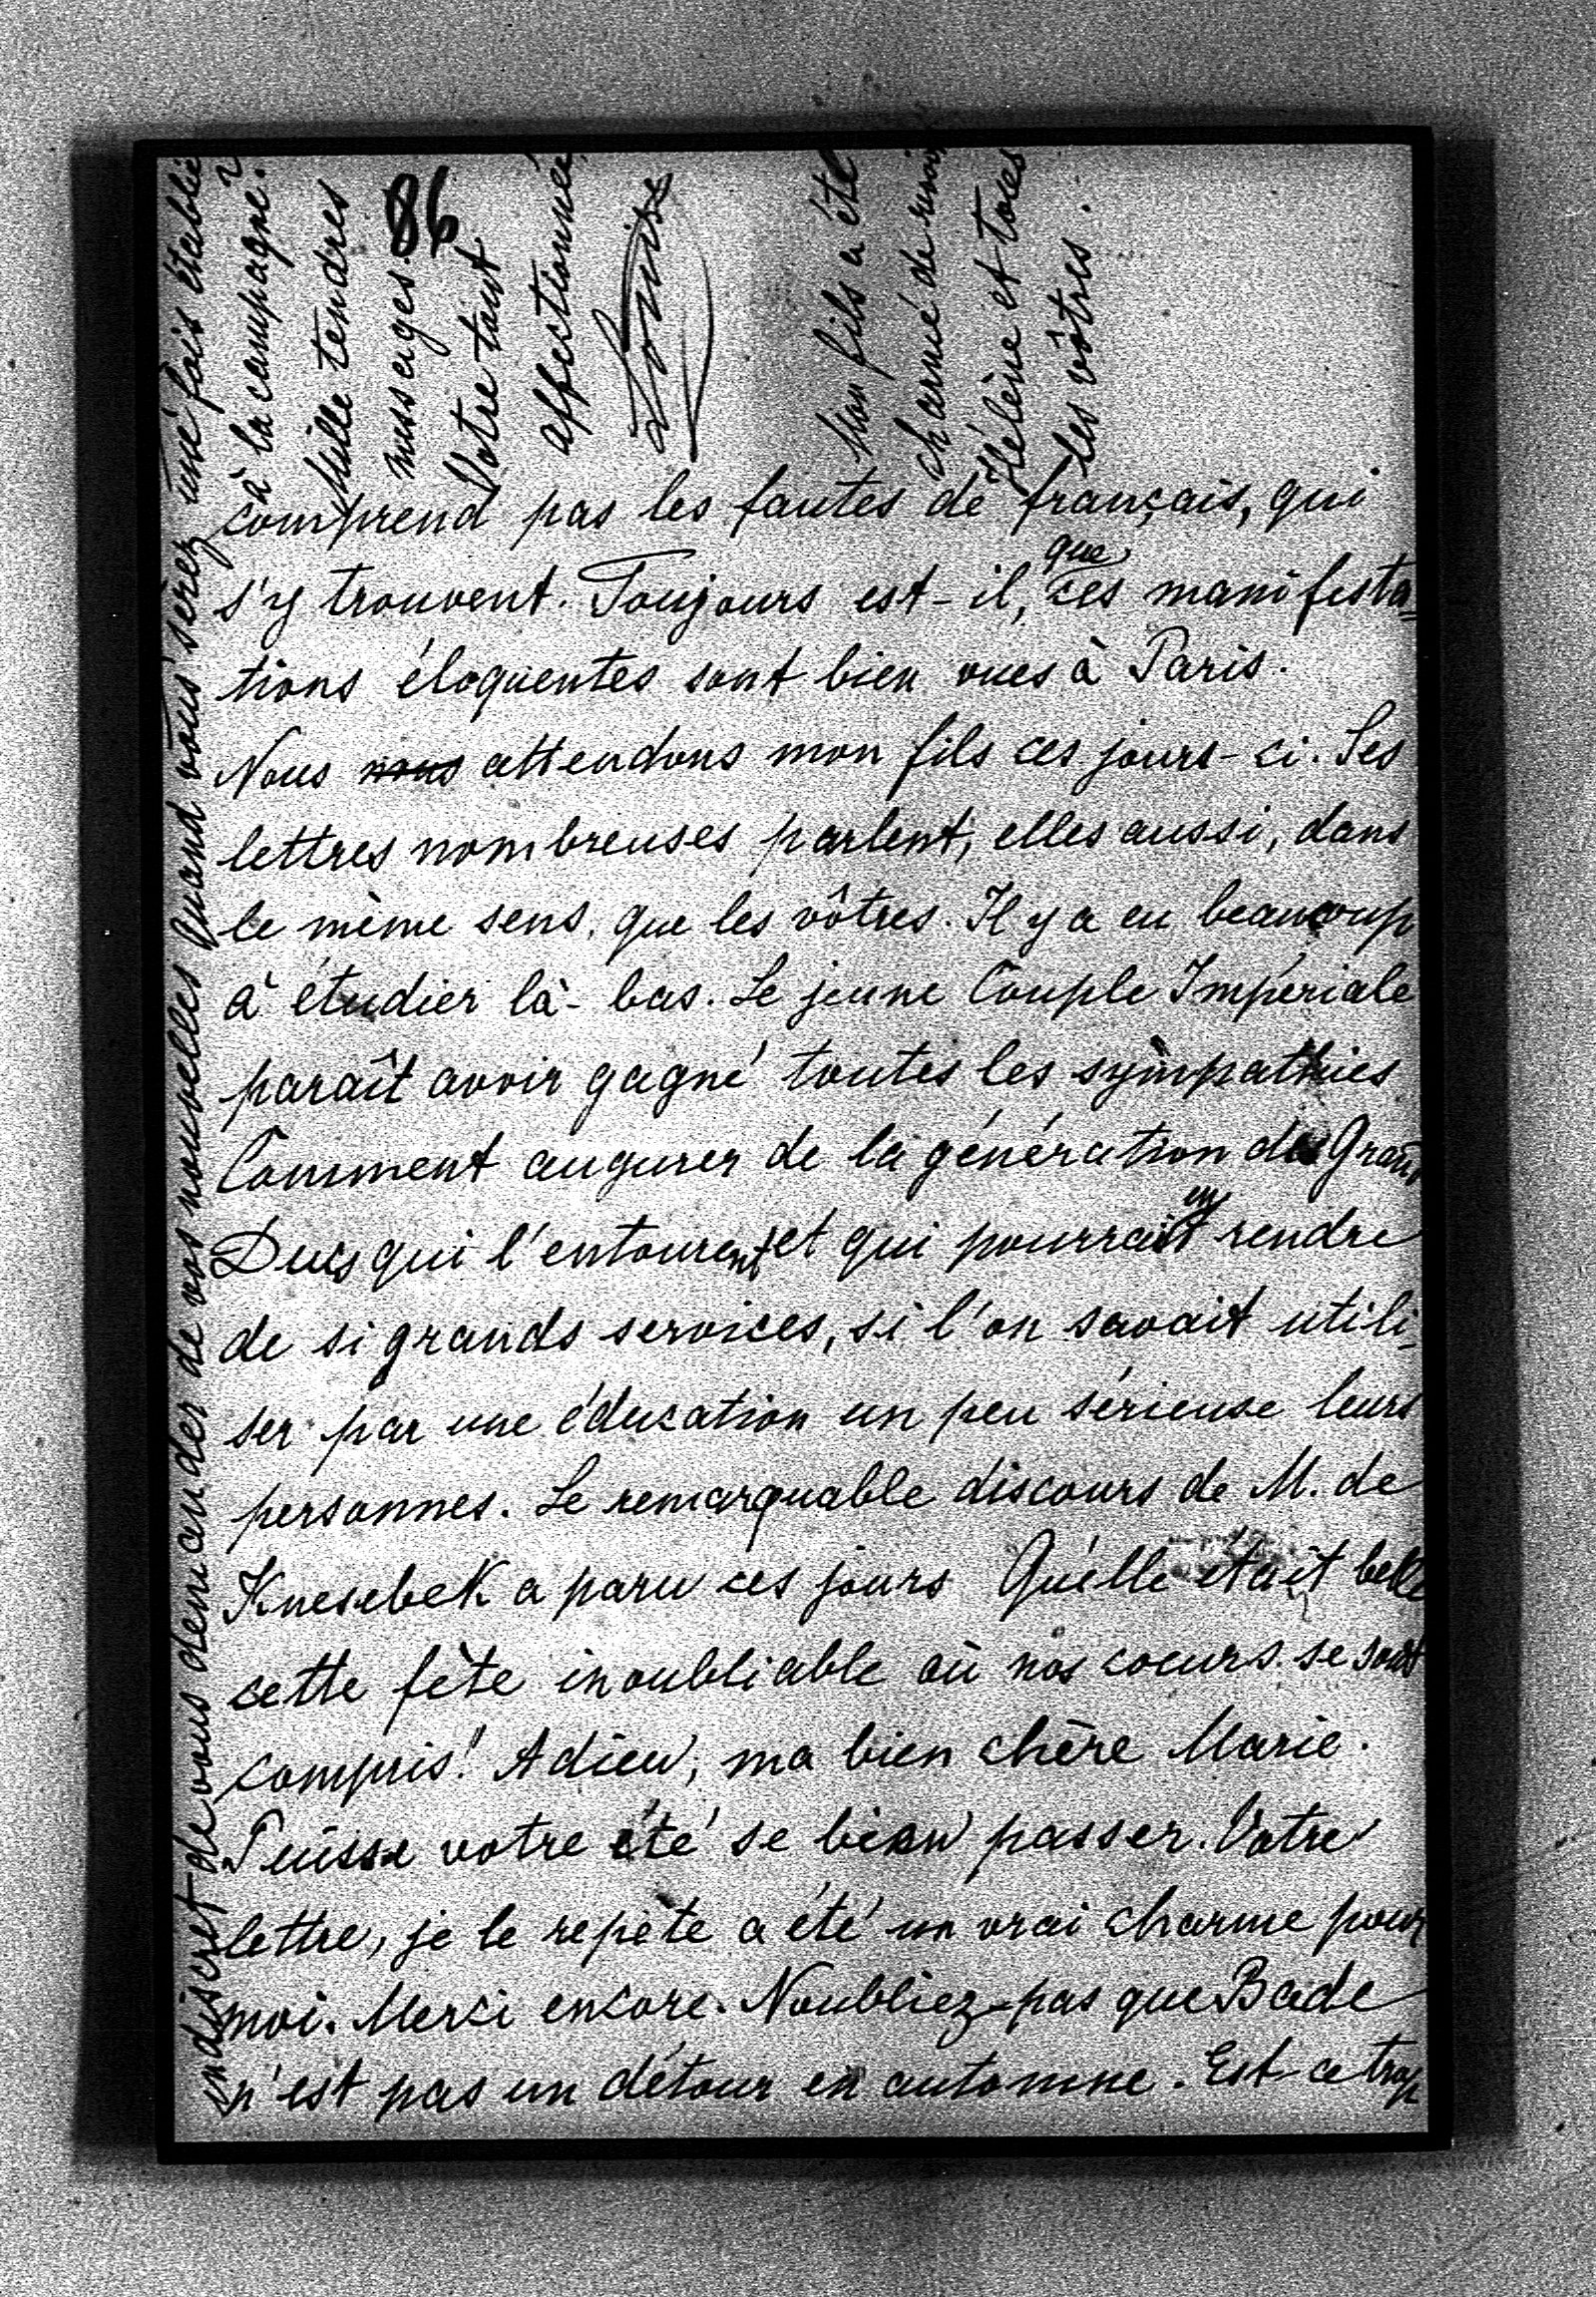 86
comprend pas les fautes de français, qui
s'y trouvent. Toujours est-il, que ces manifesta-
tions éloquentes sont bien vues à Paris.
Nous nous attendons mon fils ces jours-ci. Ses
lettres nombreuses parlent, elles aussi, dans
le même sens, que les vôtres. Il y a eu beaucoup
à étudier là-bas. Le jeune Couple Impériale
paraît avoir gagné toutes les sympathies
Comment augurer de la génération des Grand
Ducs qui l'entourent et qui pourraient rendre
de si grands services, si l'on savait utili-
ser par une éducation un peu sérieuse leurs
personnes. Le remarquable discours de M. de
Knesebek a paru ces jours Qu'elle était belle
cette fête inoubliable où nos coeurs se sont
compris! Adieu, ma bien chère Marie.
Puisse votre été se bien passer. Votre
lettre, je le repète a été un vrai charme pour
moi. Merci encore. N'oubliez-pas que Bade
n'est pas un détour en automne. Est-ce trop
indiscret de vous demander de vos nouvelles quand vous serez une fois établie
à la campagne?
Mille tendres
messages.
Votre tant
affectionnée
Louise
Mon fils a été
charmé de
Hélène et tous
les vôtres.